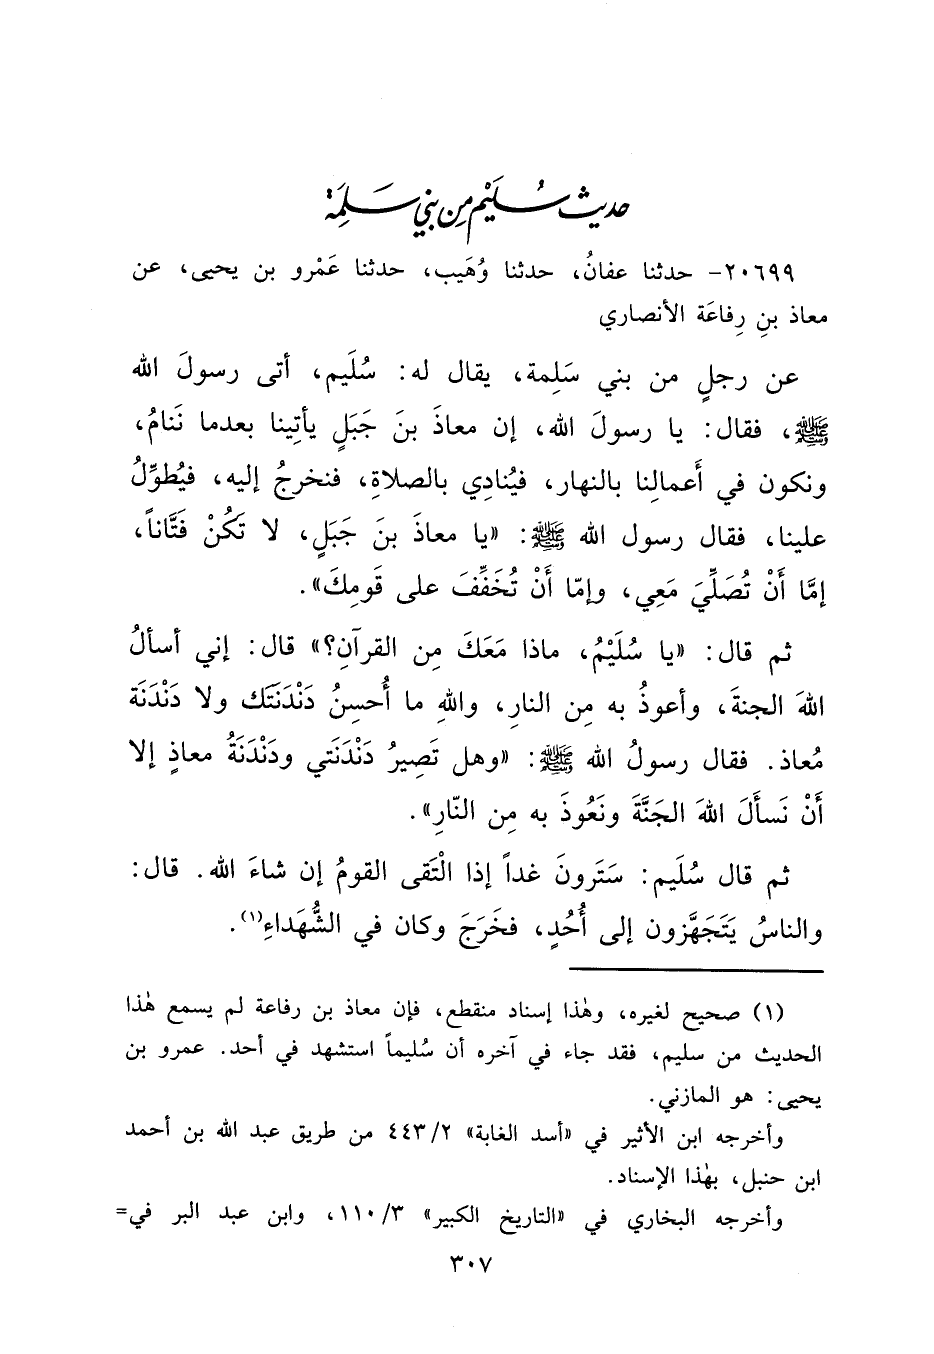 حديث سُلَيْم مِن بَنِي سَلِمَة
٢٠٦٩٩- حدثنا عفانُ، حدثنا وُهَيب، حدثنا عَمْرو بن يحيى، عن
معاذ بنِ رِفاعَة الأنصاري
عن رجلٍ من بني سَلِمة، يقال له: سُلَيم، أتى رسولَ الله
ﷺ، فقال: يا رسولَ الله، إن معاذَ بنَ جَبَلٍ يأتِينا بعدما نَنامُ،
ونكون في أَعمالِنا بالنهار، فيُنادِي بالصلاةِ، فنخرجُ إليه، فيُطوِّلُ
علينا، فقال رسول الله ﷺ: «يا معاذَ بنَ جَبَلٍ، لا تَكُنْ فَتَّاناً،
إمَّا أَنْ تُصَلِّيَ مَعِي، وإمّا أَنْ تُخَفِّفَ على قَومِكَ».
ثم قال: «يا سُلَيْمُ، ماذا مَعَكَ مِن القرآنِ؟» قال: إني أسألُ
اللهَ الجنةَ، وأعوذُ به مِن النارِ، واللهِ ما أُحسِنُ دَنْدَنَتَك ولا دَنْدَنَة
مُعاذ. فقال رسولُ الله ﷺ: «وهل تَصِيرُ دَنْدَنَتي ودَنْدَنَةُ معاذٍ إلا
أَنْ نَسأَلَ اللهَ الجَنَّةَ ونَعُوذَ به مِن النّارِ».
ثم قال سُلَيم: سَتَرونَ غداً إذا الْتَقى القومُ إن شاءَ الله. قال:
والناسُ يَتَجَهَّزون إلى أُحُدٍ، فخَرَجَ وكان في الشُّهَداءِ(١).
(١) صحيح لغيره، وهٰذا إسناد منقطع، فإن معاذ بن رفاعة لم يسمع هٰذا
الحديث من سليم، فقد جاء في آخره أن سُليماً استشهد في أحد. عمرو بن
يحيى: هو المازني.
وأخرجه ابن الأثير في «أسد الغابة» ٤٤٣/٢ من طريق عبد الله بن أحمد
ابن حنبل، بهٰذا الإسناد.
وأخرجه البخاري في «التاريخ الكبير» ١١٠/٣، وابن عبد البر في=
٣٠٧